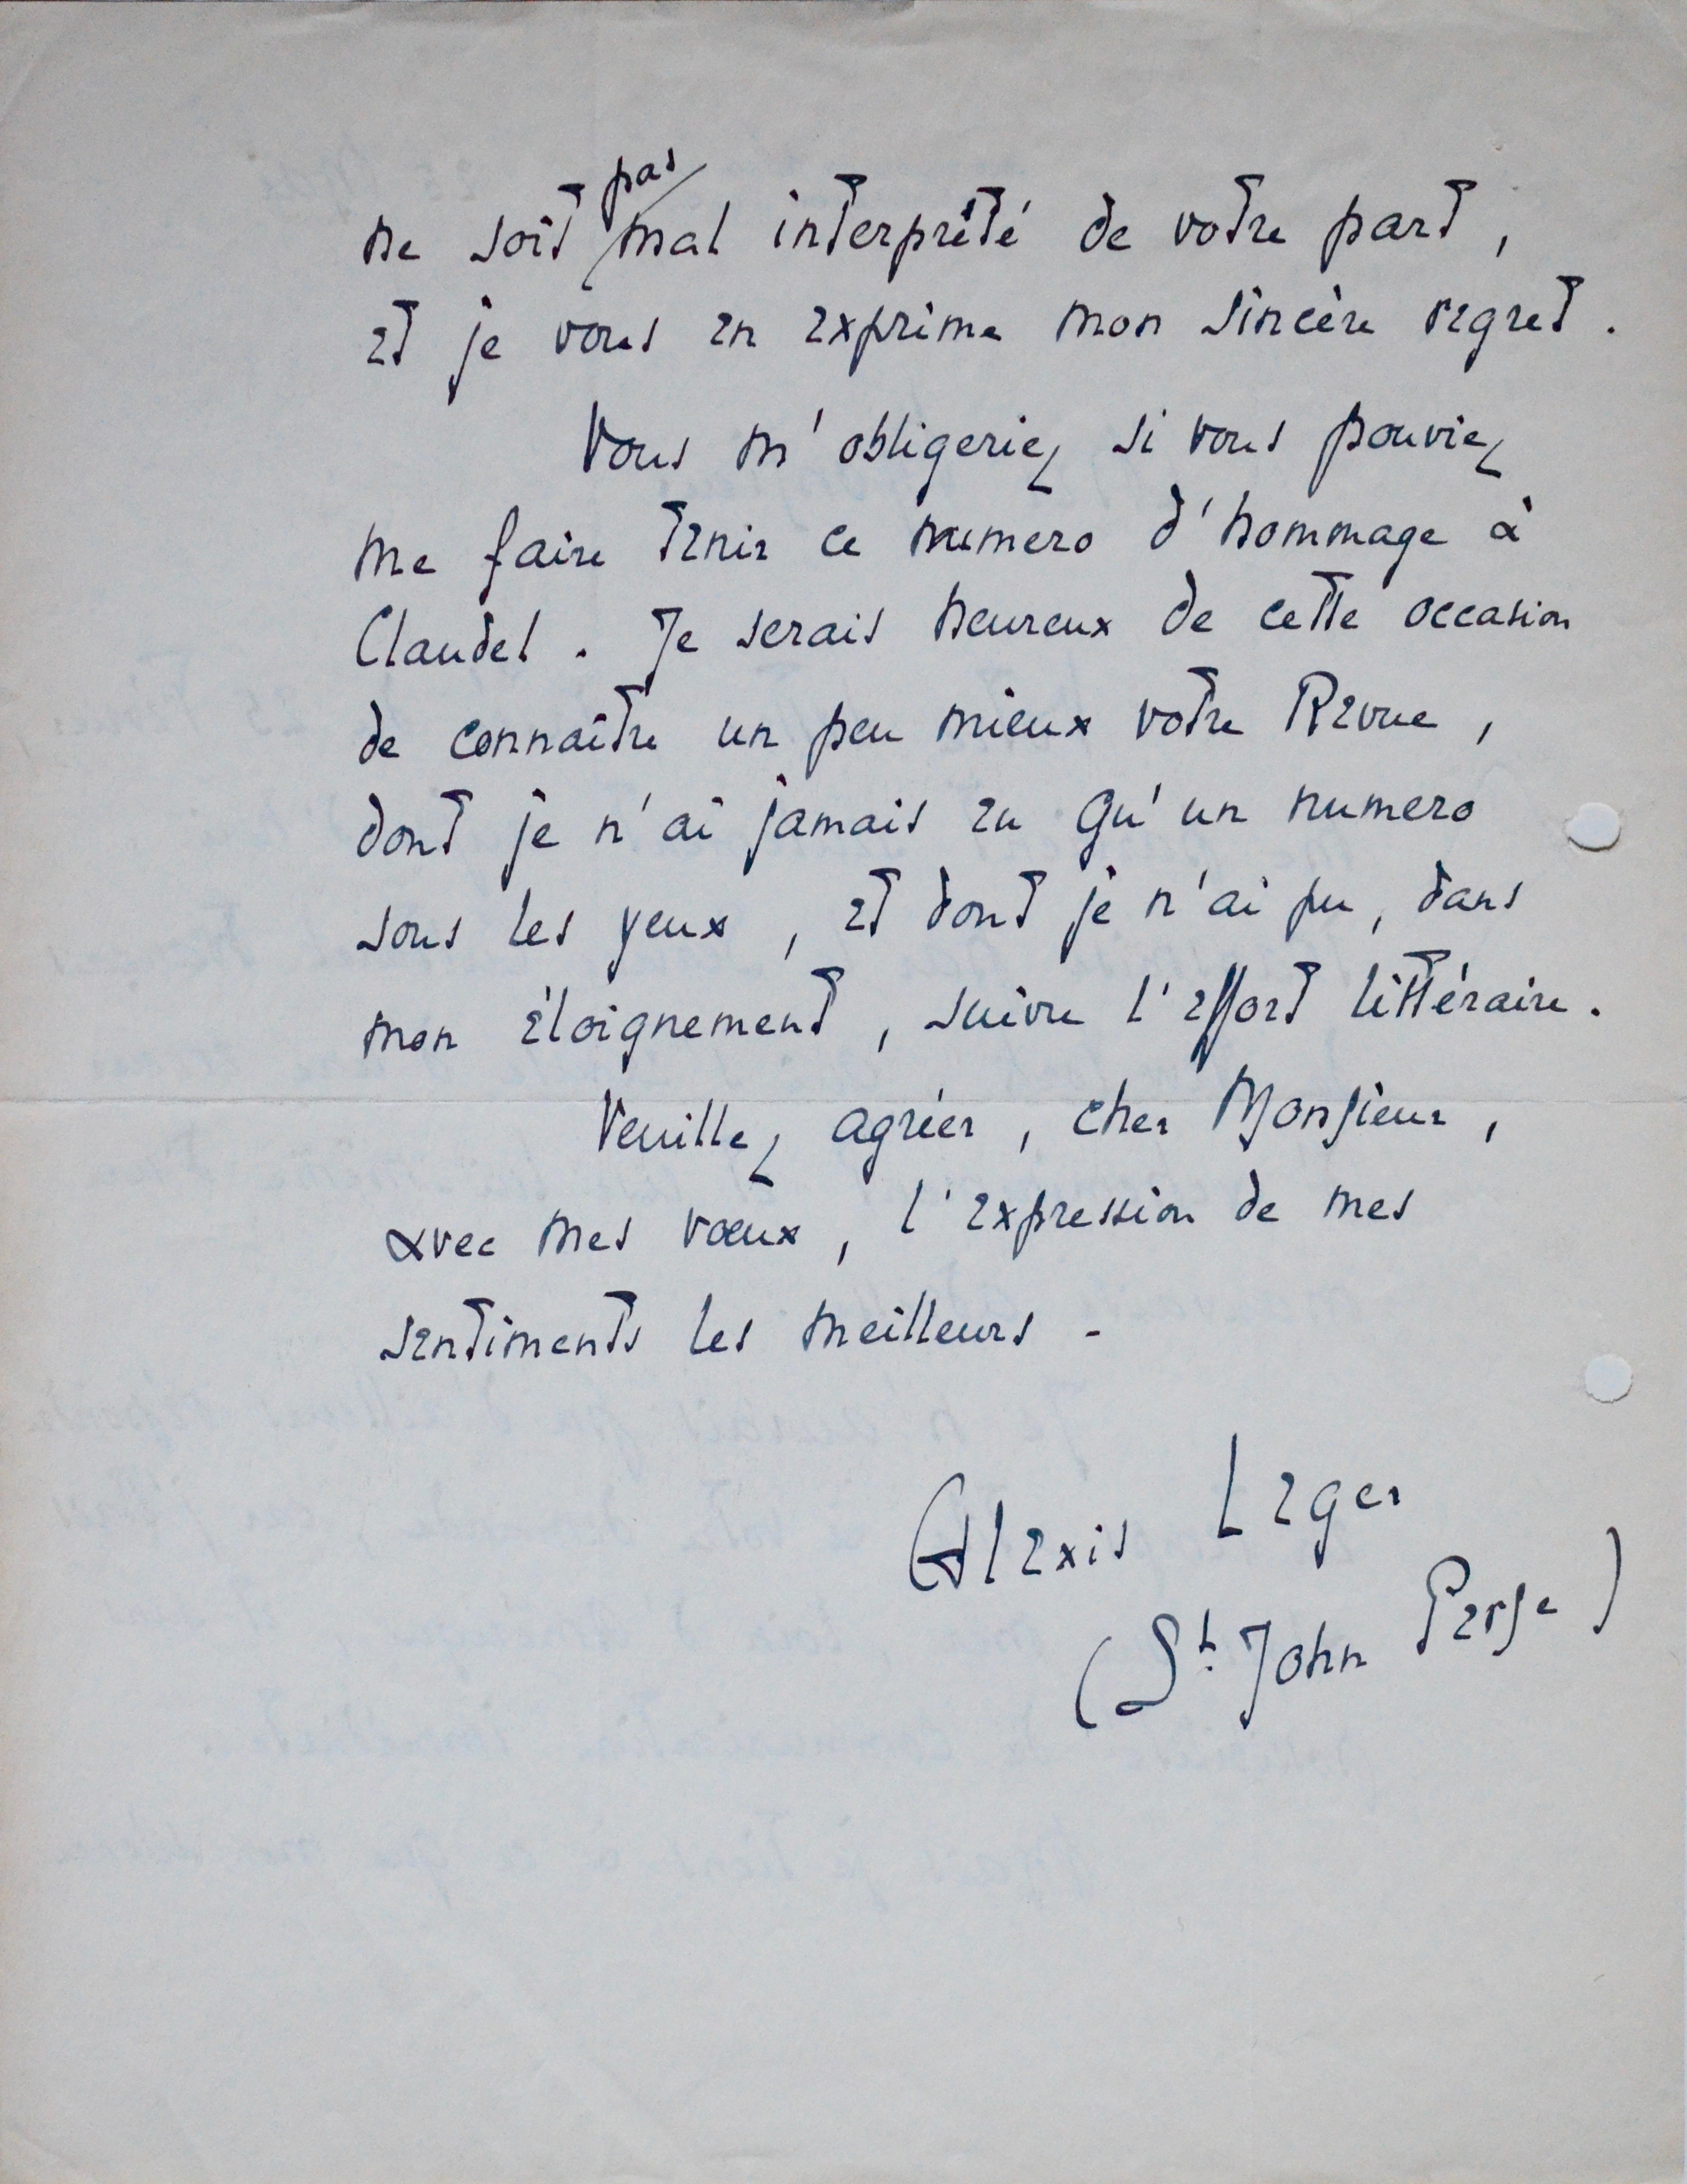 ne soit pas mal interprêté de votre part,
et je vous en exprime mon sincère regret.
Vous m'obligeriez si vous pouviez
me faire tenir ce numero d'hommage à
Claudel. Je serais heureux de cette occasion
de connaître un peu mieux votre Revue,
dont je n'ai jamais eu qu'un numero
sous les yeux, et dont je n'ai pu, dans
mon éloignement, suivre l'effort littéraire.
Veuillez agréer, cher Monsieur,
avec mes vœux, l'expression de mes
sentiments les meilleurs -
Alexis Leger
(St. John Perse)